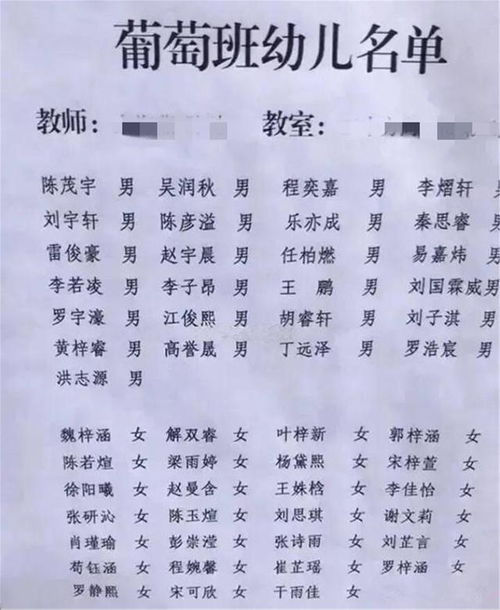 葡萄班幼儿名单
教师: 教室:
陈茂宇 男 吴润秋 男 程奕嘉 男 李熠轩 男
刘宇轩 男 陈彦溢 男 乐亦成 男 秦思睿 男
雷俊豪 男 赵宇晨 男 任柏燃 男 易嘉炜 男
李若凌 男 李子昂 男 王鹏 男 刘国霖威 男
罗宇濠 男 江俊熙 男 胡睿轩 男 刘子淇 男
黄梓睿 男 高誉晟 男 丁远泽 男 罗浩宸 男
洪志源 男
魏梓涵 女 解双睿 女 叶梓新 女 郭梓涵 女
陈若煊 女 梁雨婷 女 杨黛熙 女 宋梓萱 女
徐阳曦 女 赵曼含 女 王姝桧 女 李佳怡 女
张研沁 女 陈玉煊 女 刘思琪 女 谢文莉 女
肖瑾瑜 女 彭崇滢 女 张诗雨 女 刘芷言 女
苟钰涵 女 程婉馨 女 崔芷瑶 女 罗梓涵 女
罗静熙 女 宋可欣 女 干雨佳 女